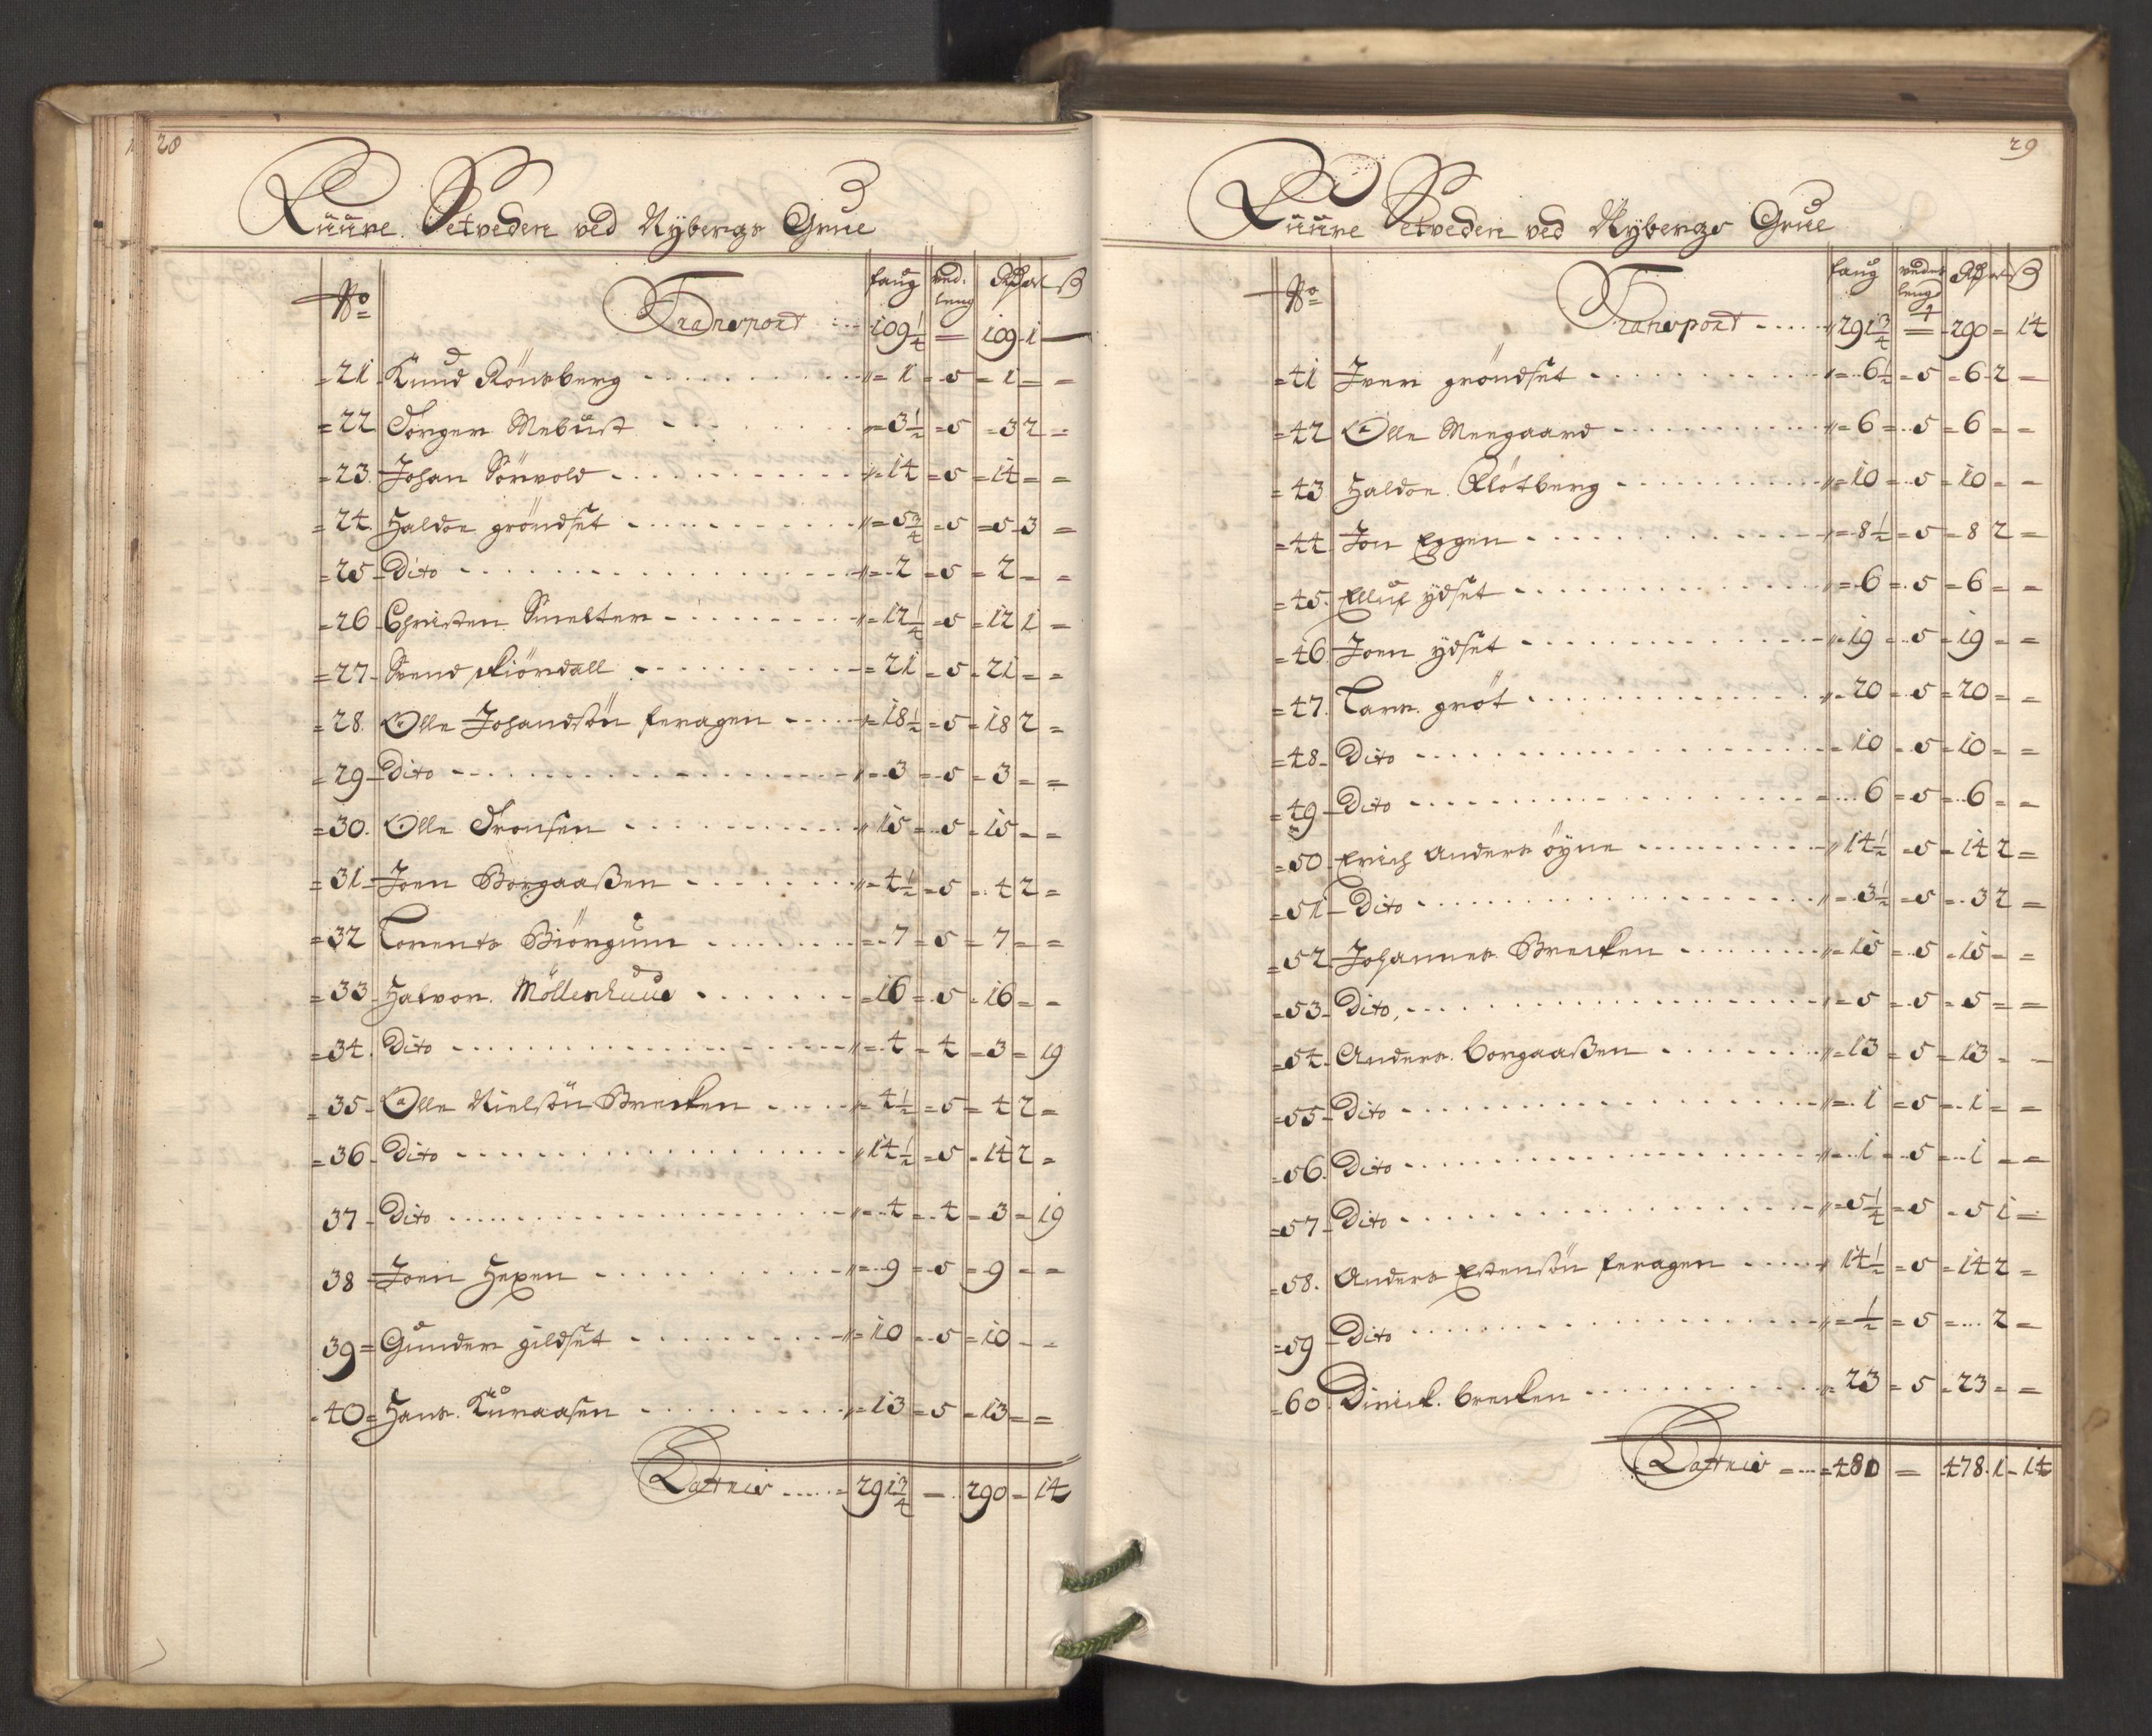 28
Kuure Setveden ved Nyberge Grue
No faug ved. leng Rdr ort ß
Transport 109 1/4 = 109 1 —
=21 Knud Rönsberg = 1 = 5 = 1 = =
=22 Torger Mebust = 3 1/2 = 5 = 3 2 =
=23. Johan Sörvold = 14 = 5 = 14 = =
=24. Haldor gröndset = 5 3/4 = 5 = 5 3 =
=25 Dito = 2 = 5 = 2 = =
=26 Christen Smelter = 12 1/4 = 5 = 12 1 =
=27 Svend fiördall = 21 = 5 = 21 = =
=28. Olle Johandsön feragen = 18 1/2 = 5 = 18 2 =
=29 Dito = 3 = 5 = 3 = =
=30. Olle Tronsen 15 = 5 = 15 = =
=31 Joen Borgaaßen = 4 1/2 = 5 = 4 2 =
=32 Lorents Biörgum = 7 = 5 = 7 = =
=33 Halvor Möllenhuus = 16 = 5 = 16 = =
=34. Dito = 4 = 4 = 3 = 19
=35 Olle Nielsön Brecken = 4 1/2 = 5 = 4 2 =
=36 Dito 14 1/2 = 5 = 14 2 =
37 Dito = 4 = 4 = 3 = 19
38 Joen Hexen = 9 = 5 = 9 = =
39 = Gunder gildset = 10 = 5 = 10 = =
=40= Hans Kuraasen = 13 = 5 = 13 = =
Lattris = 291 3/4 = 290 = 14
29
Kuure Setveden ved Nyberge Grue
No faug vedes leng Rdr ort ß
Transport 291 3/4 = 290 = 14
=41 Iver gröndset = 6 1/2 = 5 = 6 2 =
=42 Olle Moegaard = 6 = 5 = 6 = =
=43 Haldor Klötberg = 10 = 5 = 10 = =
=44 Jon Eggen = 8 1/2 = 5 = 8 2 =
=45. Elluf ydset = 6 = 5 = 6 = =
=46 Joen ydset 19 = 5 = 19 = =
=47. Lars gröt = 20 = 5 = 20 = =
=48 Dito = 10 = 5 = 10 = =
=49 Dito = 6 = 5 = 6 = =
=50 Erich Anders öyne 14 1/2 = 5 = 14 2 =
=51 Dito = 3 1/2 = 5 = 3 2 =
=52 Johannes Brecken = 15 = 5 = 15 = =
=53 Dito = 5 = 5 = 5 = =
=54. Anders borgaaßen = 13 = 5 = 13 = =
=55 Dito = 1 = 5 = 1 = =
=56. Dito = 1 = 5 = 1 = =
=57 Dito = 5 1/4 = 5 = 5 1 =
=58. Anders Estensön feragen 14 1/2 = 5 = 14 2 =
=59 Dito = 1/2 = 5 = 2 =
=60 Dirick brecken = 23 = 5 = 23 = =
Lattris = 480 = 478 1 = 14